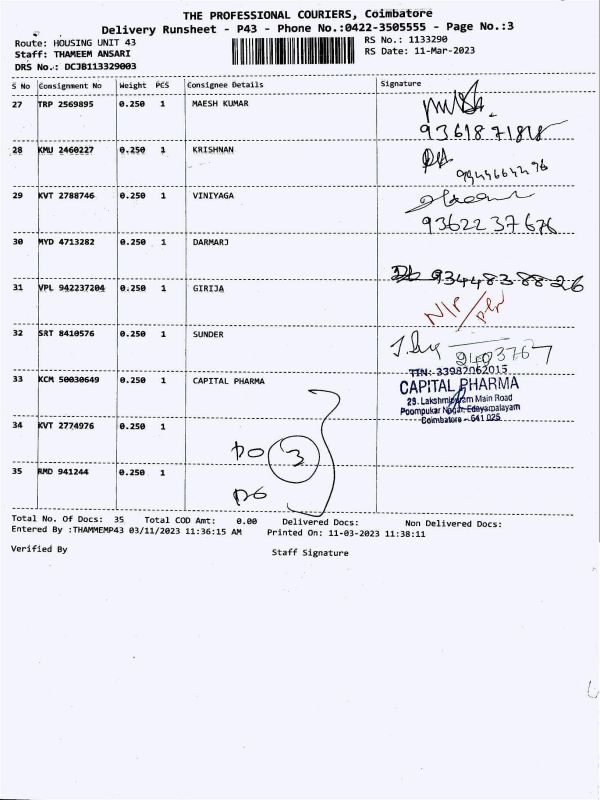 THE PROFESSIONAL COURIERS, Coimbatore
Delivery Runsheet - P43 - Phone No.:0422-3505555 - Page No.:3
Route: HOUSING UNIT 43
Staff: THAMEEM ANSARI
DRS No.: DCJB113329003
RS No.: 1133290
RS Date: 11-Mar-2023
S No Consignment No Weight PCS Consignee Details Signature
27 TRP 2569895 0.250 1 MAESH KUMAR
28 KMU 2460227 0.250 1 KRISHNAN
29 KVT 2788746 0.250 1 VINIYAGA
9362237676
30 MYD 4713282 0.250 1 DARMARJ
9344838826
31 VPL 942237204 0.250 1 GIRIJA
N/P
32 SRT 8410576 0.250 1 SUNDER
33 KCM 50030649 0.250 1 CAPITAL PHARMA
TIN:-33982062015
CAPITAL PHARMA
Main Road
Poompukar Nagar, Edayarpalayam
Coimbatore - 641 025
34 KVT 2774976 0.250 1
3
35 RMD 941244 0.250 1
Total No. Of Docs: 35 Total COD Amt: 0.00 Delivered Docs: Non Delivered Docs:
Entered By :THAMMEMP43 03/11/2023 11:36:15 AM Printed On: 11-03-2023 11:38:11
Verified By Staff Signature